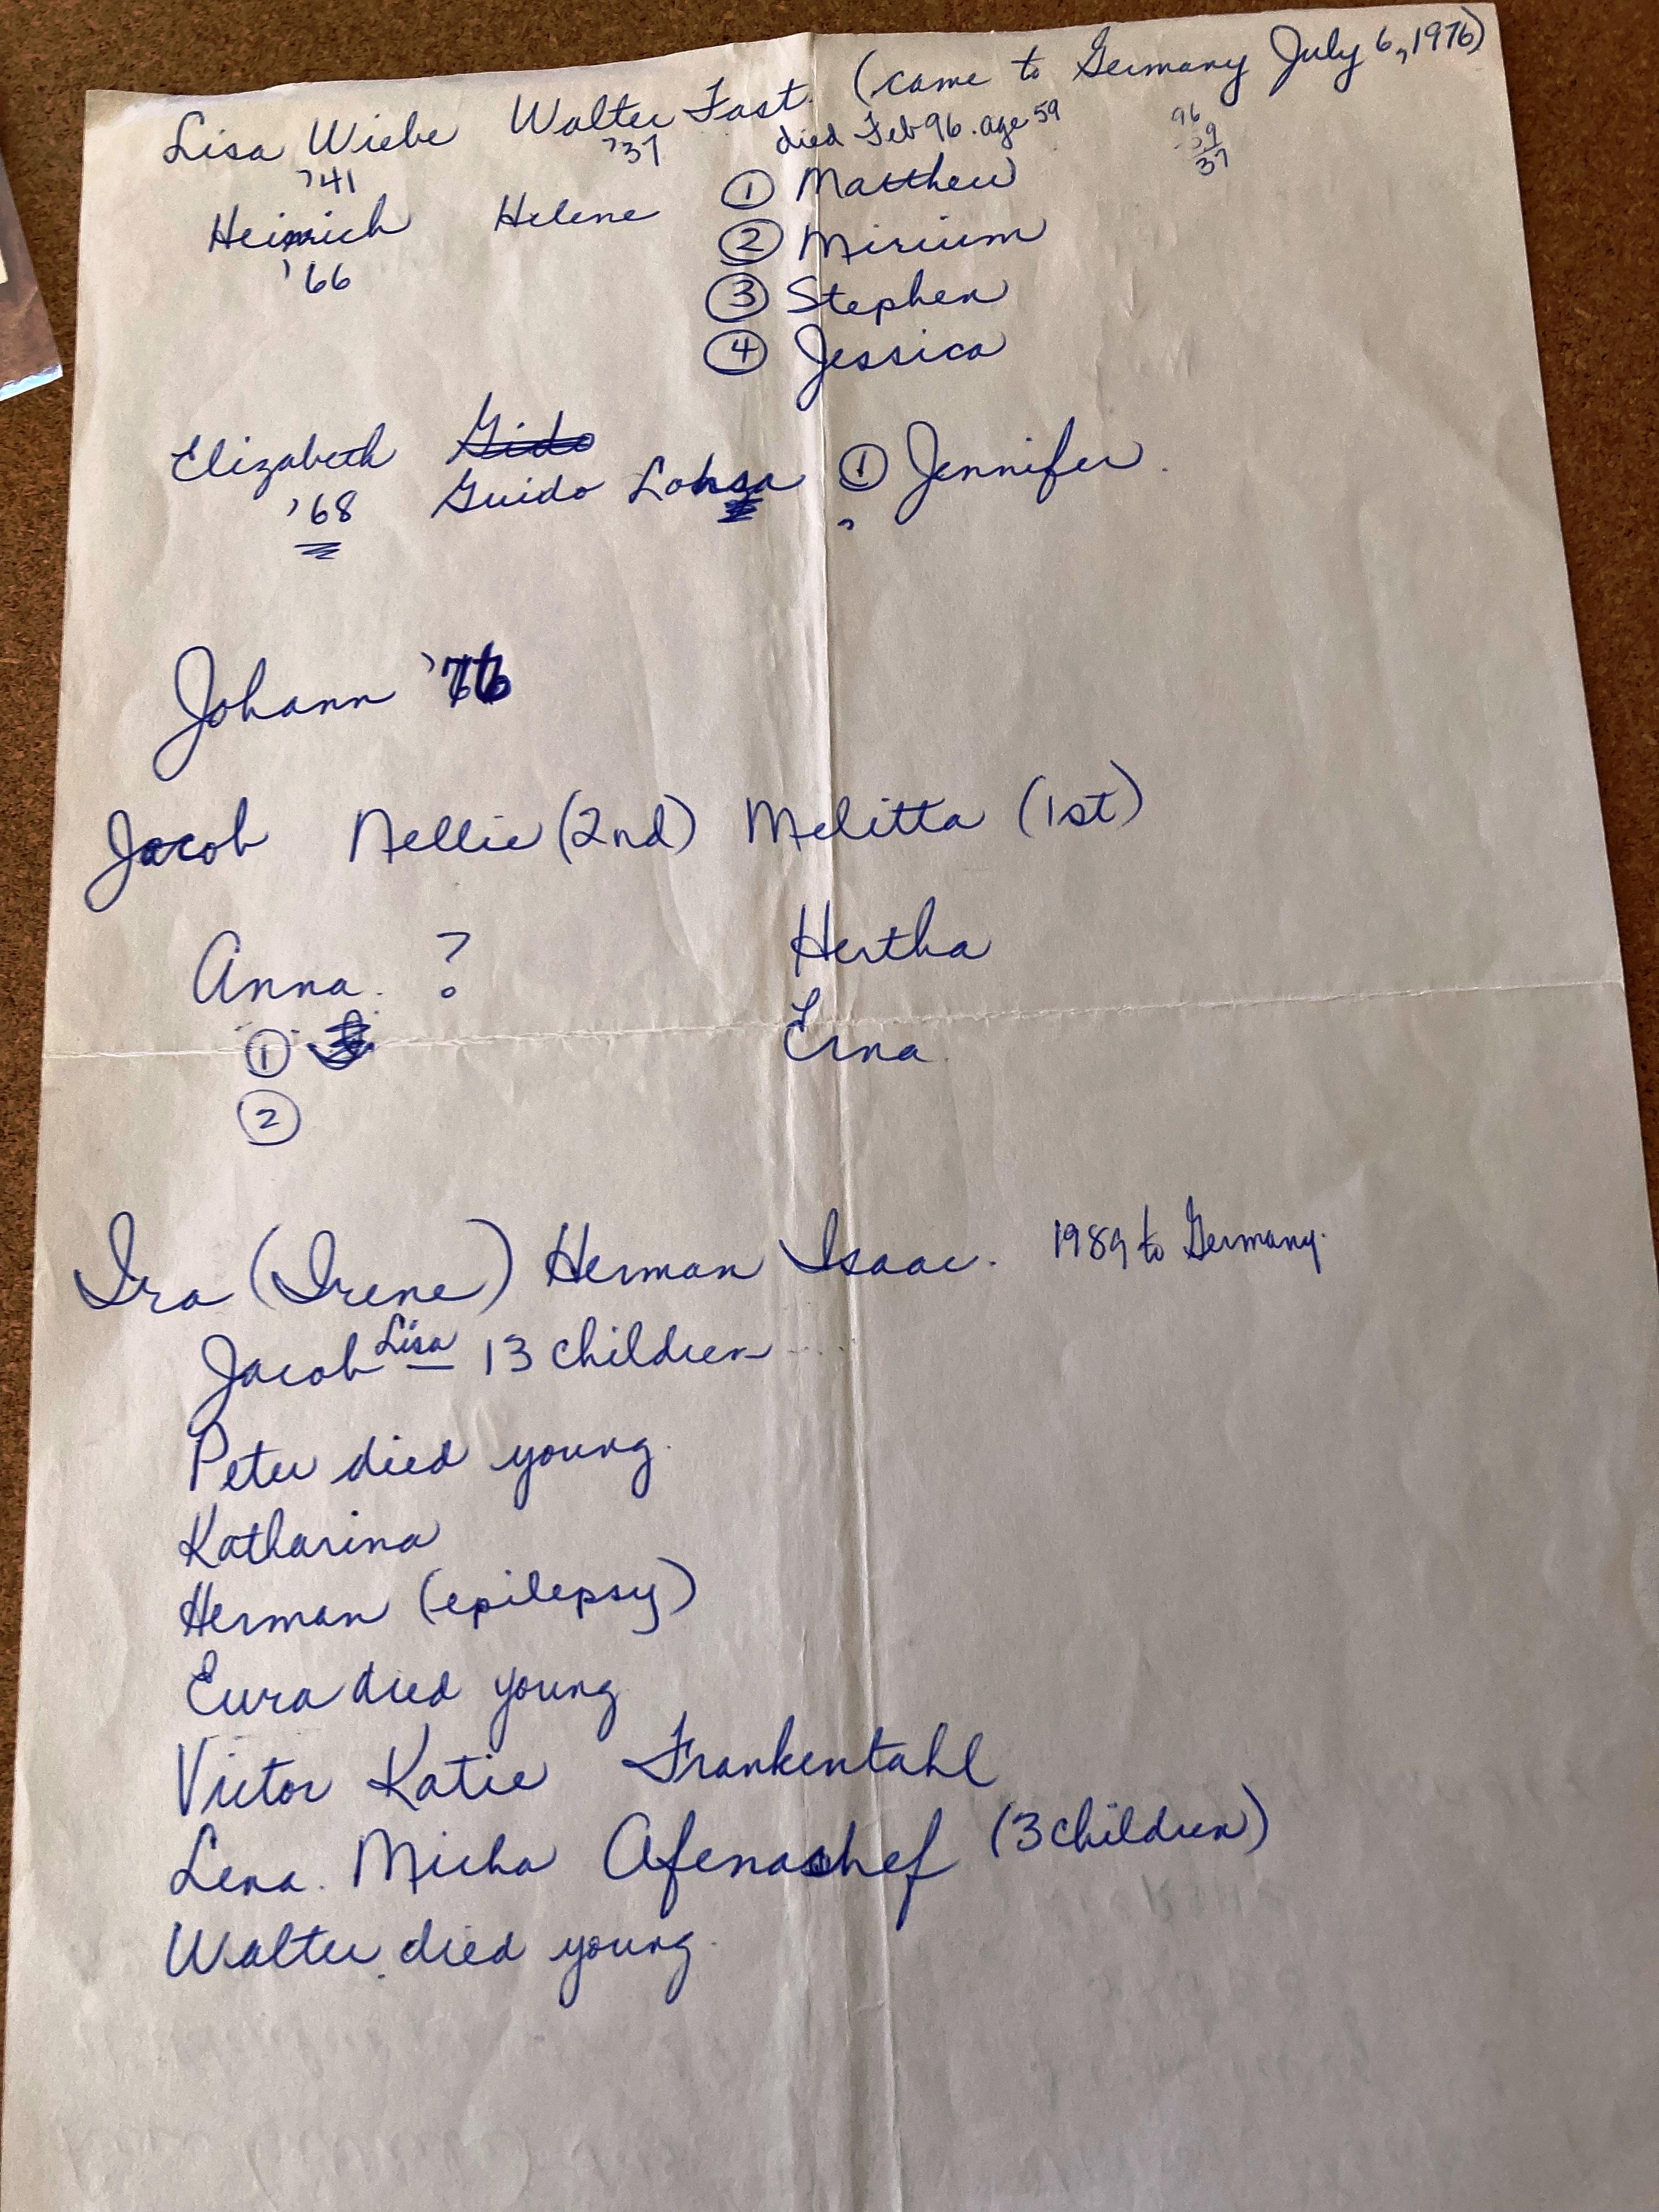 Lisa Wiebe Walter Fast. (came to Germany July 6, 1976)
'41 '37 died Feb 96. age 59
96
59
37
Heinrich Helene ① Matthew
'66 ② Mirium
③ Stephen
④ Jessica
Elizabeth Gido
'68 Guido ① Jennifer.
Johann
Jacob Nellie (2nd) Melitta (1st)
Anna. ? Hertha
① Erna
②
Ira (Irene) Herman Isaac. 1989 to Germany.
Jacob Lisa — 13 children
Peter died young.
Katharina
Herman (epilepsy)
Eura died young
Victor Katie Frankentahl
Lena. Micha Afenashef (3 children)
Walter died young.